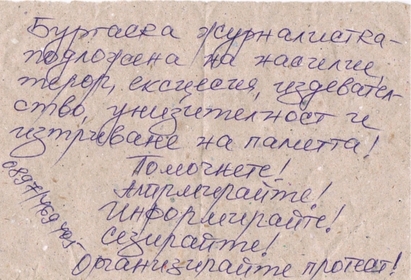 Бургаска журналистка-
подложена на насилие,
терор, ексцесия, издевател-
ство, унизителност и
изтриване на паметта!
Помогнете!
Алармирайте!
Информирайте!
Сезирайте!
Организирайте протест!